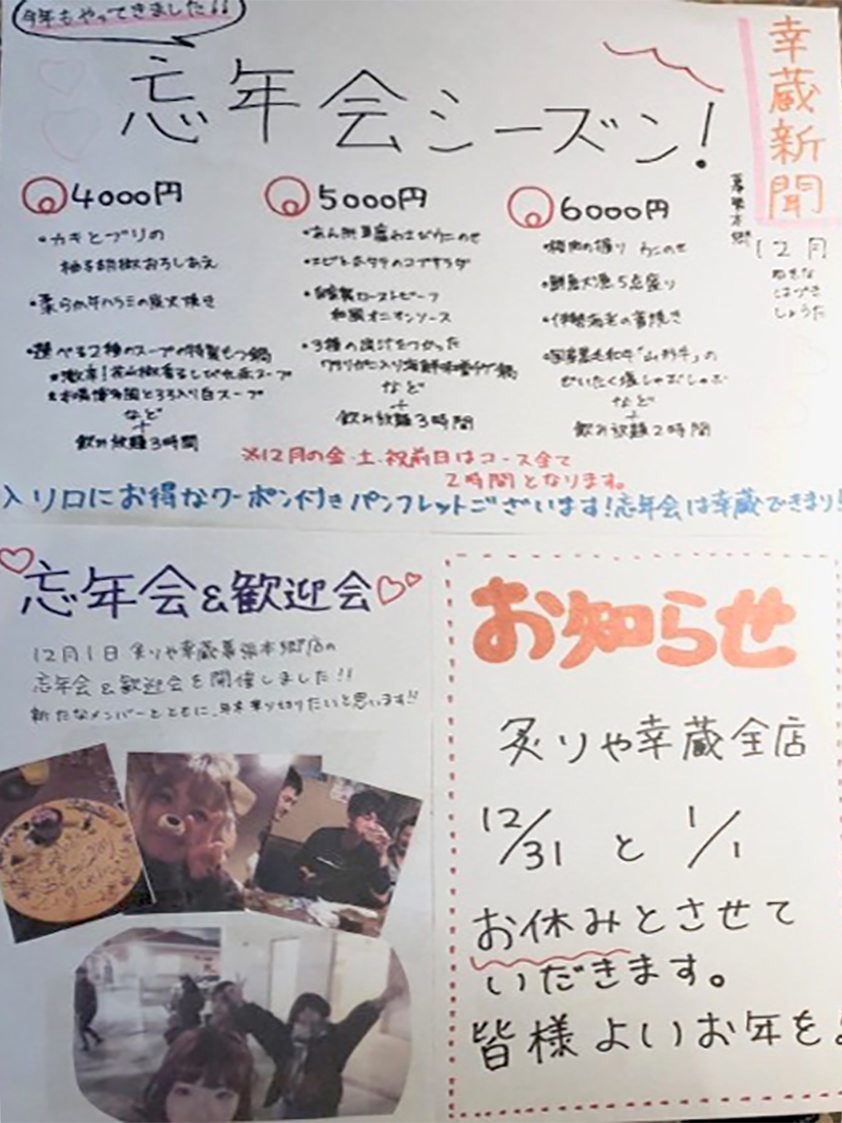 今年もやってきました!!
忘年会シーズン!
幸蔵新聞
幕張本郷
12月
はづき
しょうた
4000円
・カキとブリの
柚子胡椒おろしあえ
・柔らか牛ハラミの炭火焼き
・選べる2種のスープの特製もつ鍋
など
+
飲み放題3時間
5000円
・あん肝 うにのせ
・エビとホタテのコブサラダ
・自家製ローストビーフ
和風オニオンソース
・3種の出汁をつかった
ワタリガニ入り海鮮味噌チゲ鍋
など
+
飲み放題3時間
6000円
握り うにのせ
・鮮魚大漁5点盛り
・伊勢海老の姿焼き
・国産黒毛和牛「山形牛」の
ぜいたく塩しゃぶしゃぶ
など
+
飲み放題2時間
※12月の金・土・祝前日はコース全て
2時間となります。
入り口にお得なクーポン付きパンフレットございます!忘年会は幸蔵できまり!
忘年会&歓迎会
12月1日 炙りや幸蔵幕張本郷店の
忘年会&歓迎会を開催しました!!
新たなメンバーとともに、年末乗り切りたいと思います!!
お知らせ
炙りや幸蔵全店
12/31 と 1/1
お休みとさせて
いだきます。
皆様よいお年を